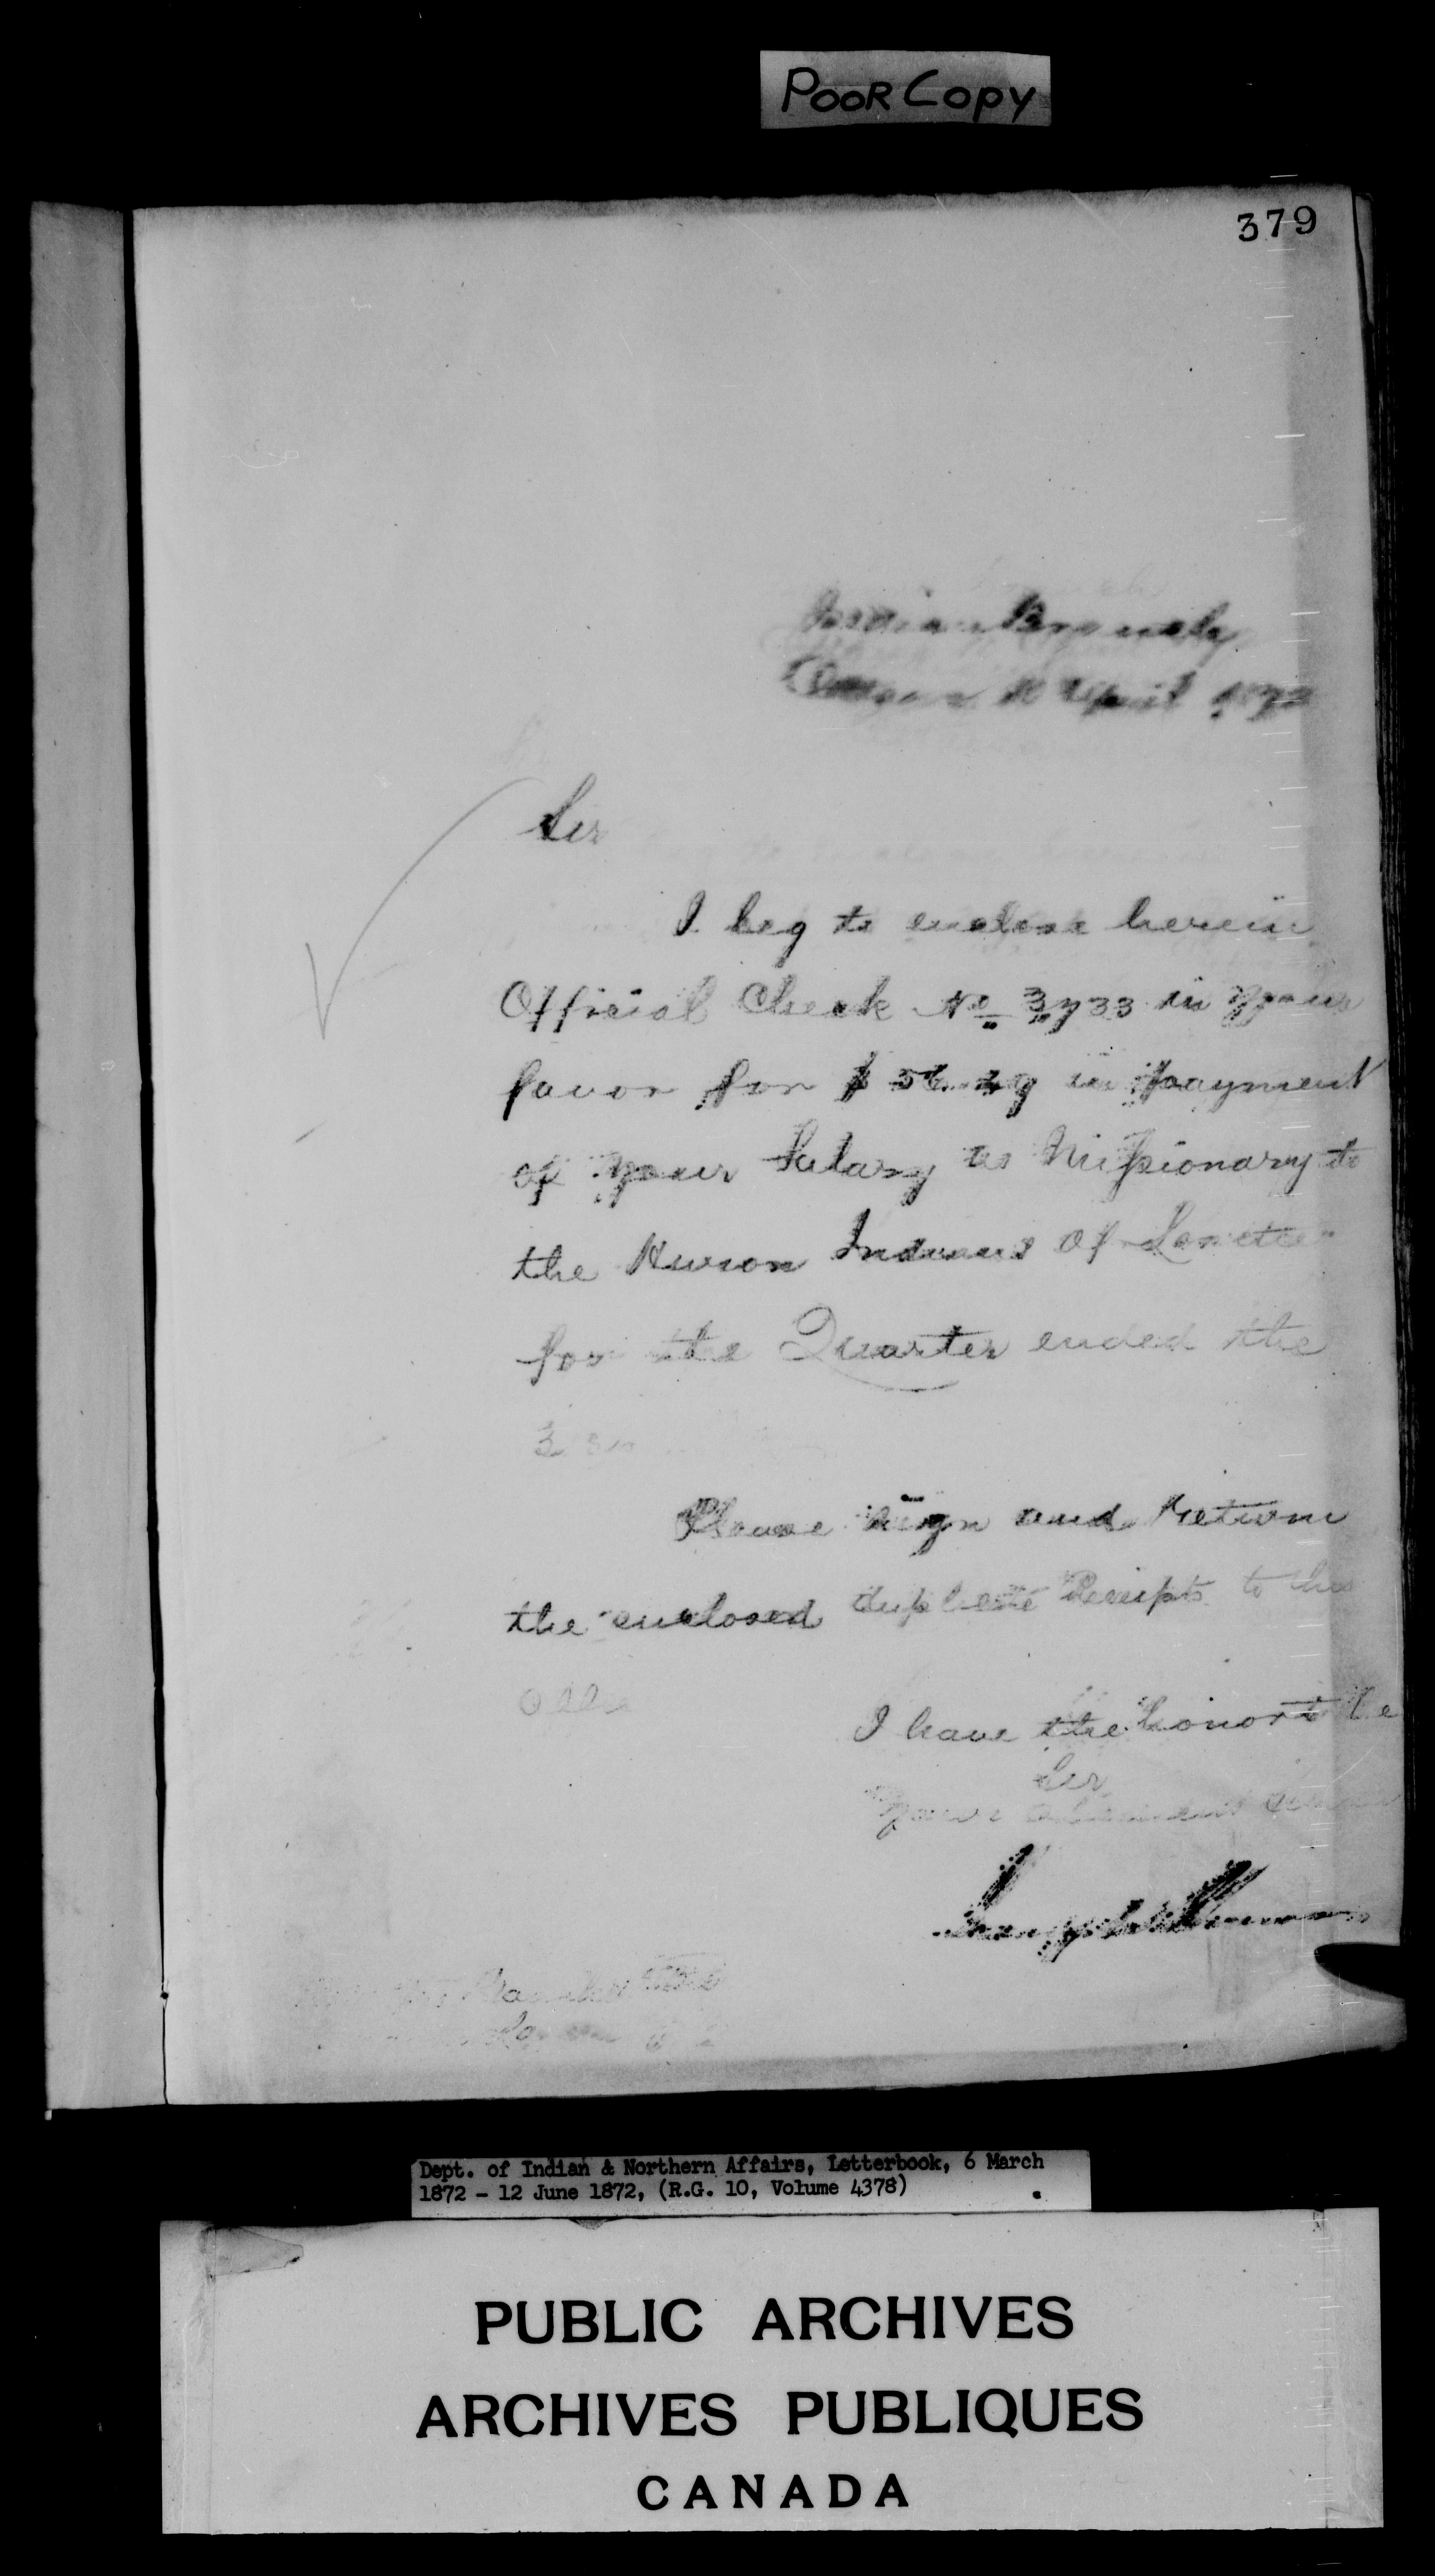 POOR COPY
379
Indian Branch
April 1872
Sir
I beg to enclose herein
Official Check No 3733 in your
favor for $ in payment
of your Salary as Missionary to
the Huron Indians of Lorette
for the Quarter ended the
Please sign and return
the enclosed duplicate Receipts to this
I have the honor to be
Sir
Your obedient
Dept. of Indian & Northern Affairs, Letterbook, 6 March
1872 - 12 June 1872, (R.G. 10, Volume 4378)
PUBLIC ARCHIVES
ARCHIVES PUBLIQUES
CANADA